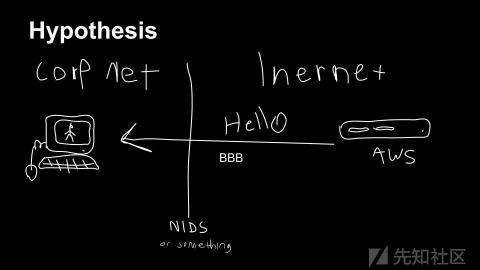 Hypothesis
Corp Net
Inernet
Hello
BBB
AWS
NIDS
or something
先知社区